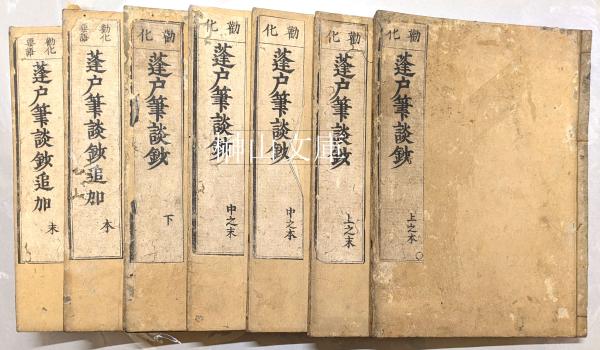 勸化
蓬户筆談鈔
上之本
勸化
蓬户筆談鈔
上之末
勸化
蓬户筆談鈔
中之本
勸化
蓬户筆談鈔
中之末
勸化
蓬户筆談鈔
下
勸化要語
蓬户筆談鈔追加
本
勸化要語
蓬户筆談鈔追加
末
榊山文庫